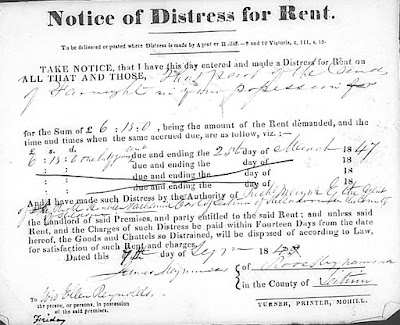 Notice of Distress for Rent.
To be delivered or posted where Distress is made by Agent or Bailiff—9 and 10 Victoria, c. 111, s. 10.
TAKE NOTICE, that I have this day entered and made a Distress for Rent on
ALL THAT AND THOSE, That part of the Lands
of in your possession
for the Sum of £ 6 : 15 : 0, being the amount of the Rent demanded, and the
time and times when the same accrued due, are as follow, viz.:—
£ s. d.
6 : 15 : 0 one half year due and ending the 25 day of March 1847
due and ending the day of 18
due and ending the day of 18
due and ending the day of 18
And I have made such Distress by the Authority of
of the
the Landlord of said Premises, and party entitled to the said Rent; and unless said
Rent, and the Charges of such Distress be paid within Fourteen Days from the date
hereof, the Goods and Chattels so Distrained, will be disposed of according to Law,
for satisfaction of such Rent and charges.
Dated this day of 18
James of
in the County of Leitrim
To Wid Ellen Reynolds
the person, or persons, in possession
of the said premises.
Friday
TURNER, PRINTER, MOHILL.